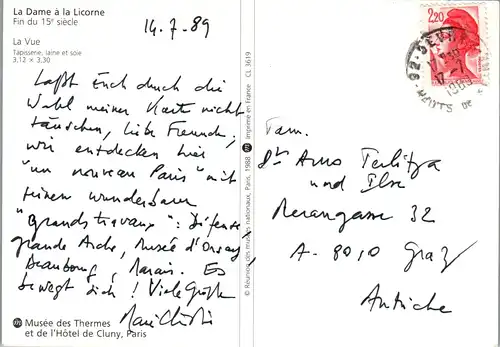 La Dame à la Licorne
Fin du 15e siècle
La Vue
Tapisserie, laine et soie
3,12 × 3,30
14.7.89
Laßt Euch durch die
Wahl meiner Karte nicht
täuschen, liebe Freunde;
wir entdecken hier
"un nouveau Paris" mit
seinen wunderbaren
"Grands travaux": Défense,
grande Arche, Musée d'Orsay,
Beaubourg, Marais. Es
bewegt sich! Viele Grüße
Musée des Thermes
et de l'Hôtel de Cluny, Paris
© Réunion des musées nationaux, Paris, 1988 Imprimé en France CL 3619
2,20
92-SEVRES
17-7
1989
HAUTS DE
Fam.
Arno
und Ilse
32
A-8010 Graz
Autriche